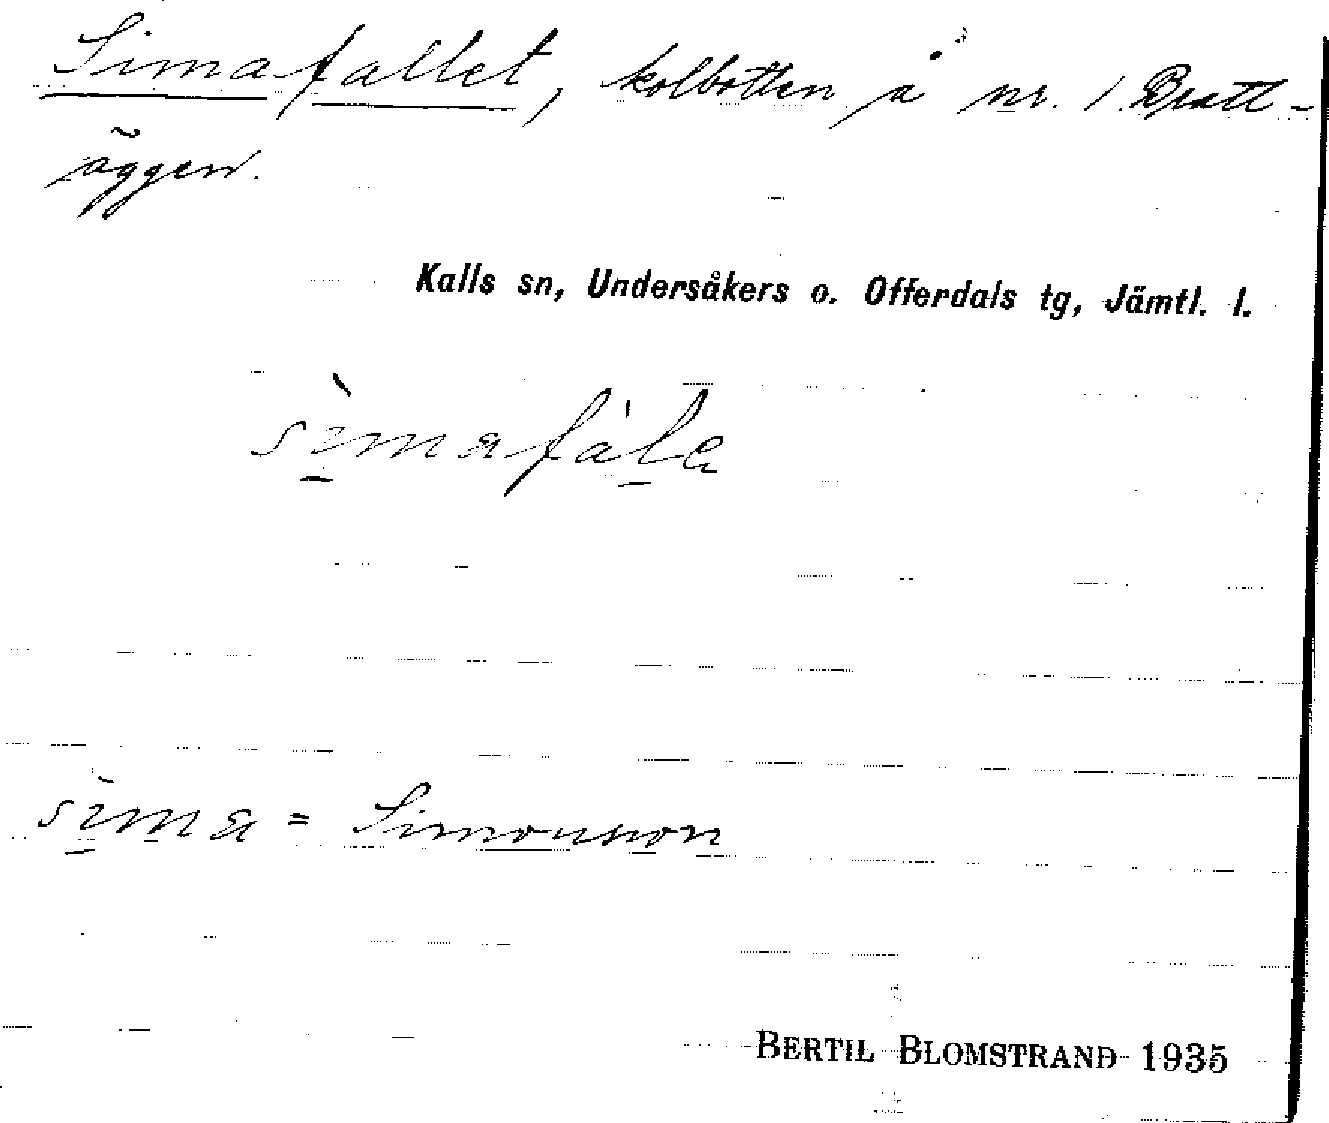 Simafallet, kolbotten å nr. 1 Bratt-
äggen.
Kalls sn, Undersåkers o. Offerdals tg, Jämtl. l.
sìmafàla
sìma = Simonson
BERTIL BLOMSTRAND 1935